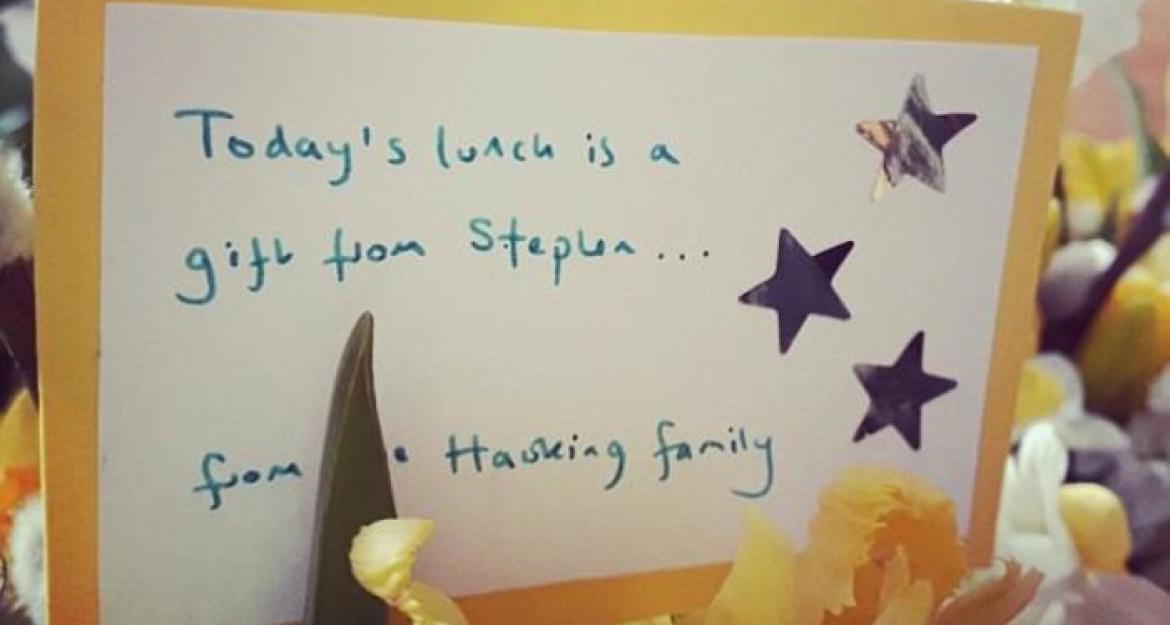 Today's lunch is a
gift from Stephen...
from Hawking family